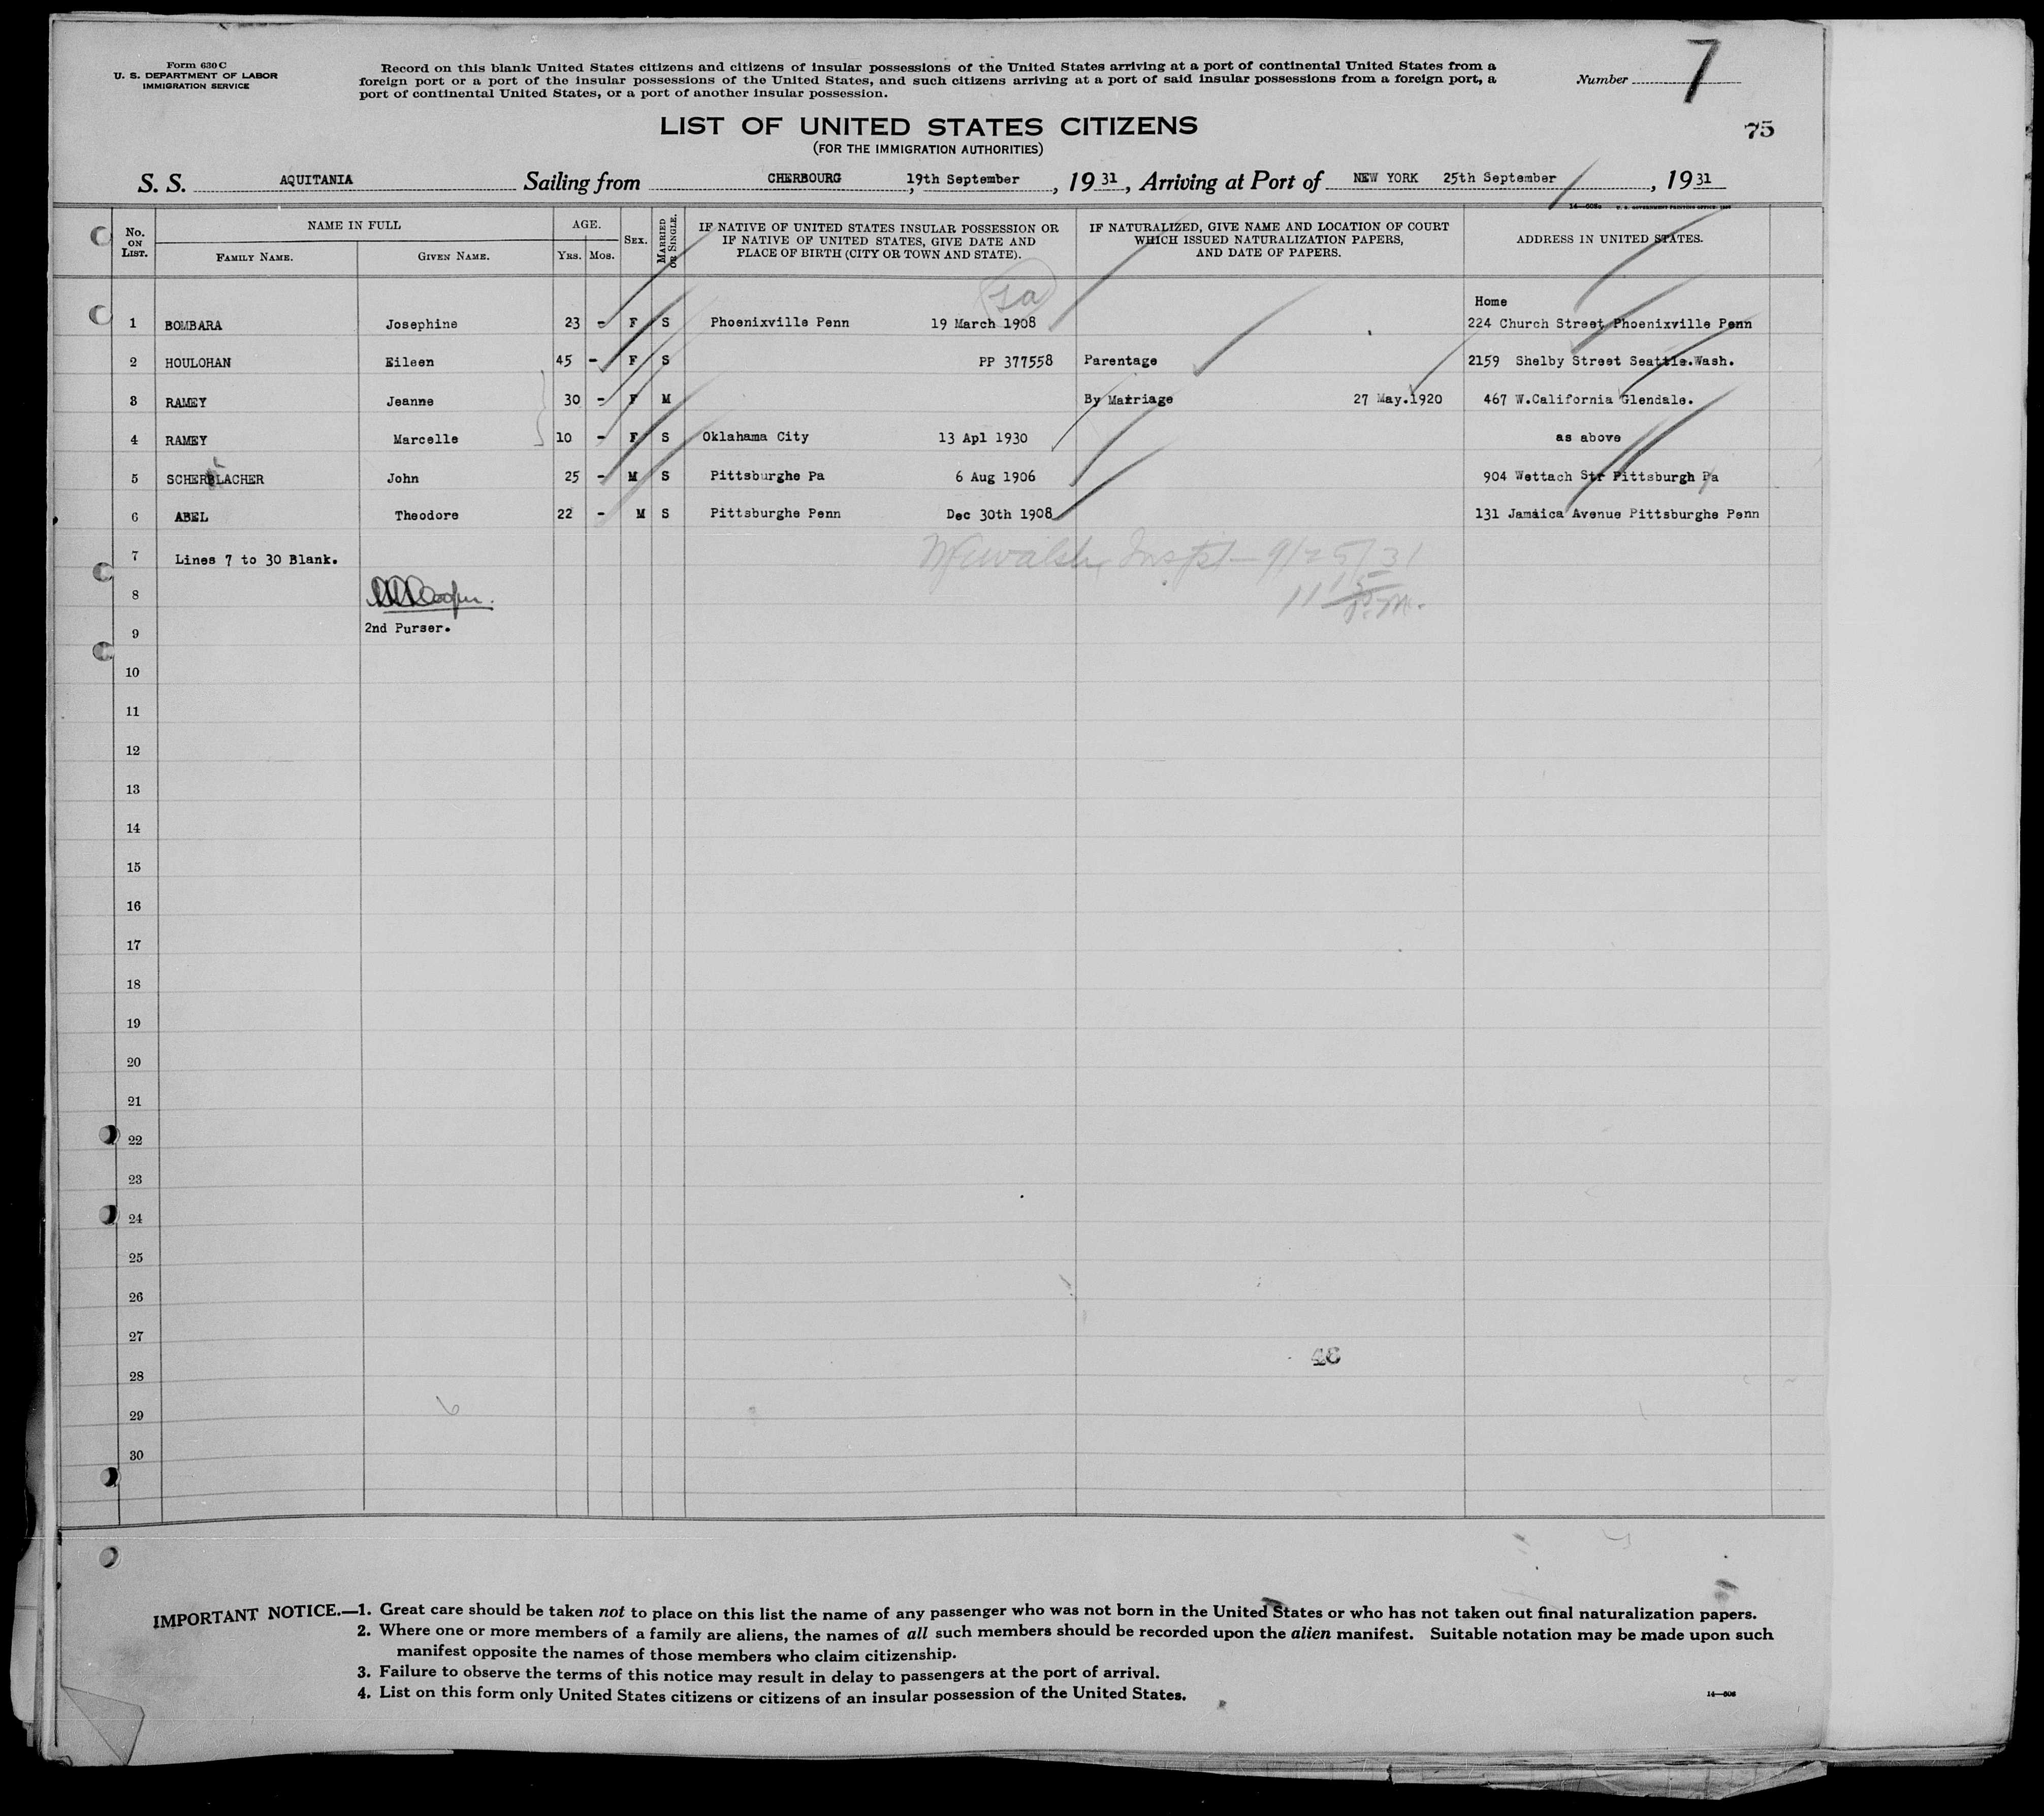 Form 630 C
U. S. DEPARTMENT OF LABOR
IMMIGRATION SERVICE
Record on this blank United States citizens and citizens of insular possessions of the United States arriving at a port of continental United States from a
foreign port or a port of the insular possessions of the United States, and such citizens arriving at a port of said insular possessions from a foreign port, a
port of continental United States, or a port of another insular possession.
Number 7
75
LIST OF UNITED STATES CITIZENS
(FOR THE IMMIGRATION AUTHORITIES)
S. S. AQUITANIA Sailing from CHERBOURG, 19th September, 1931, Arriving at Port of NEW YORK 25th September, 1931
No. ON LIST. NAME IN FULL FAMILY NAME. GIVEN NAME. AGE. YRS. MOS. SEX. MARRIED OR SINGLE. IF NATIVE OF UNITED STATES INSULAR POSSESSION OR IF NATIVE OF UNITED STATES, GIVE DATE AND PLACE OF BIRTH (CITY OR TOWN AND STATE). IF NATURALIZED, GIVE NAME AND LOCATION OF COURT WHICH ISSUED NATURALIZATION PAPERS, AND DATE OF PAPERS. ADDRESS IN UNITED STATES.
Home
1 BOMBARA Josephine 23 - F S Phoenixville Penn 19 March 1908 224 Church Street Phoenixville Penn
2 HOULOHAN Eileen 45 - F S PP 377558 Parentage 2159 Shelby Street Seattle.Wash.
3 RAMEY Jeanne 30 - F M By Marriage 27 May.1920 467 W.California Glendale.
4 RAMEY Marcelle 10 - F S Oklahoma City 13 Apl 1930 as above
5 SCHERBLACHER John 25 - M S Pittsburghe Pa 6 Aug 1906 904 Wettach Str Pittsburgh Pa
6 ABEL Theodore 22 - M S Pittsburghe Penn Dec 30th 1908 131 Jamaica Avenue Pittsburghe Penn
7 Lines 7 to 30 Blank.
Walsh Inspt - 9/25/31
8
2nd Purser.
9
10
11
12
13
14
15
16
17
18
19
20
21
22
23
24
25
26
27
28
29
6
30
IMPORTANT NOTICE.—1. Great care should be taken not to place on this list the name of any passenger who was not born in the United States or who has not taken out final naturalization papers.
2. Where one or more members of a family are aliens, the names of all such members should be recorded upon the alien manifest. Suitable notation may be made upon such
manifest opposite the names of those members who claim citizenship.
3. Failure to observe the terms of this notice may result in delay to passengers at the port of arrival.
4. List on this form only United States citizens or citizens of an insular possession of the United States.